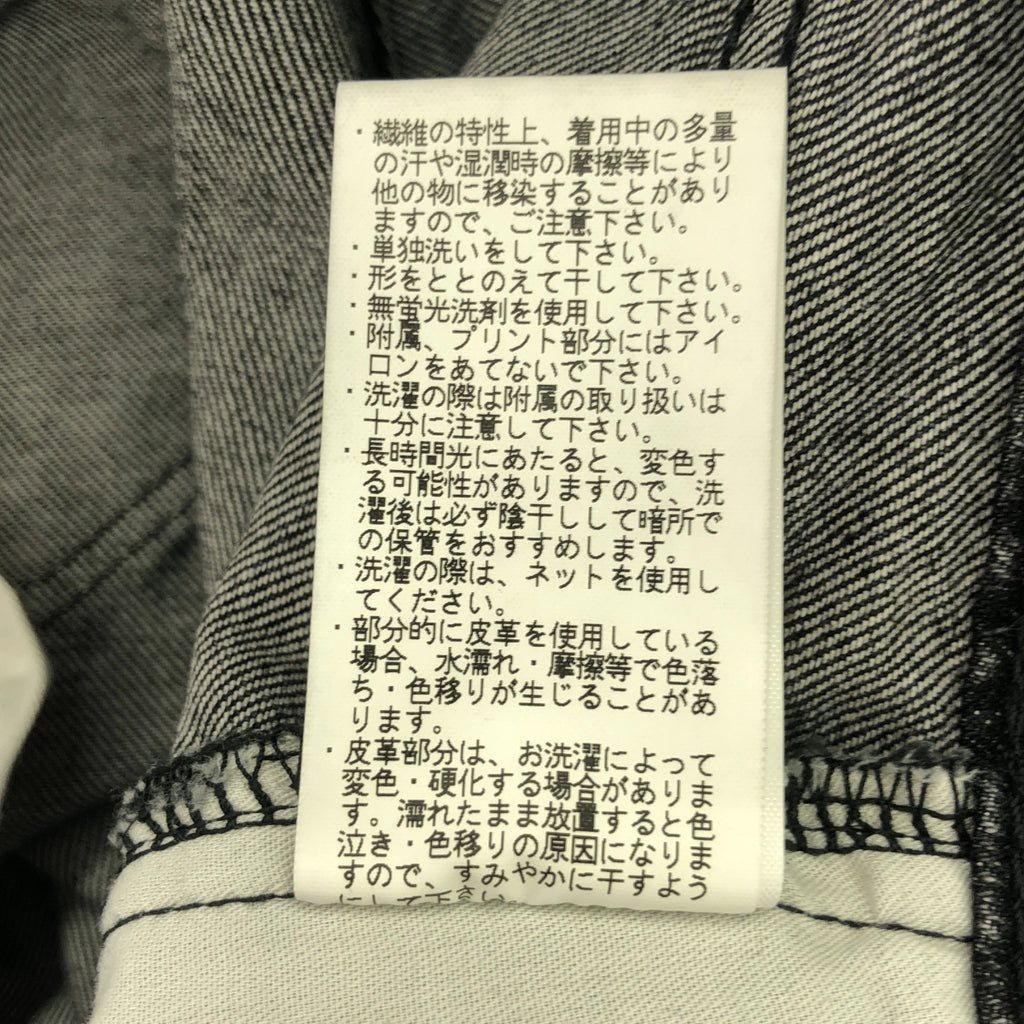 ・繊維の特性上、着用中の多量
の汗や湿潤時の摩擦等により
他の物に移染することがあり
ますので、ご注意下さい。
・単独洗いをして下さい。
・形をととのえて干して下さい。
・無蛍光洗剤を使用して下さい。
・附属、プリント部分にはアイ
ロンをあてないで下さい。
・洗濯の際は附属の取り扱いは
十分に注意して下さい。
・長時間光にあたると、変色す
る可能性がありますので、洗
濯後は必ず陰干しして暗所で
の保管をおすすめします。
・洗濯の際は、ネットを使用し
てください。
・部分的に皮革を使用している
場合、水濡れ・摩擦等で色落
ち・色移りが生じることがあ
ります。
・皮革部分は、お洗濯によって
変色・硬化する場合がありま
す。濡れたまま放置すると色
泣き・色移りの原因になりま
すので、すみやかに干すよう
にして下さい。